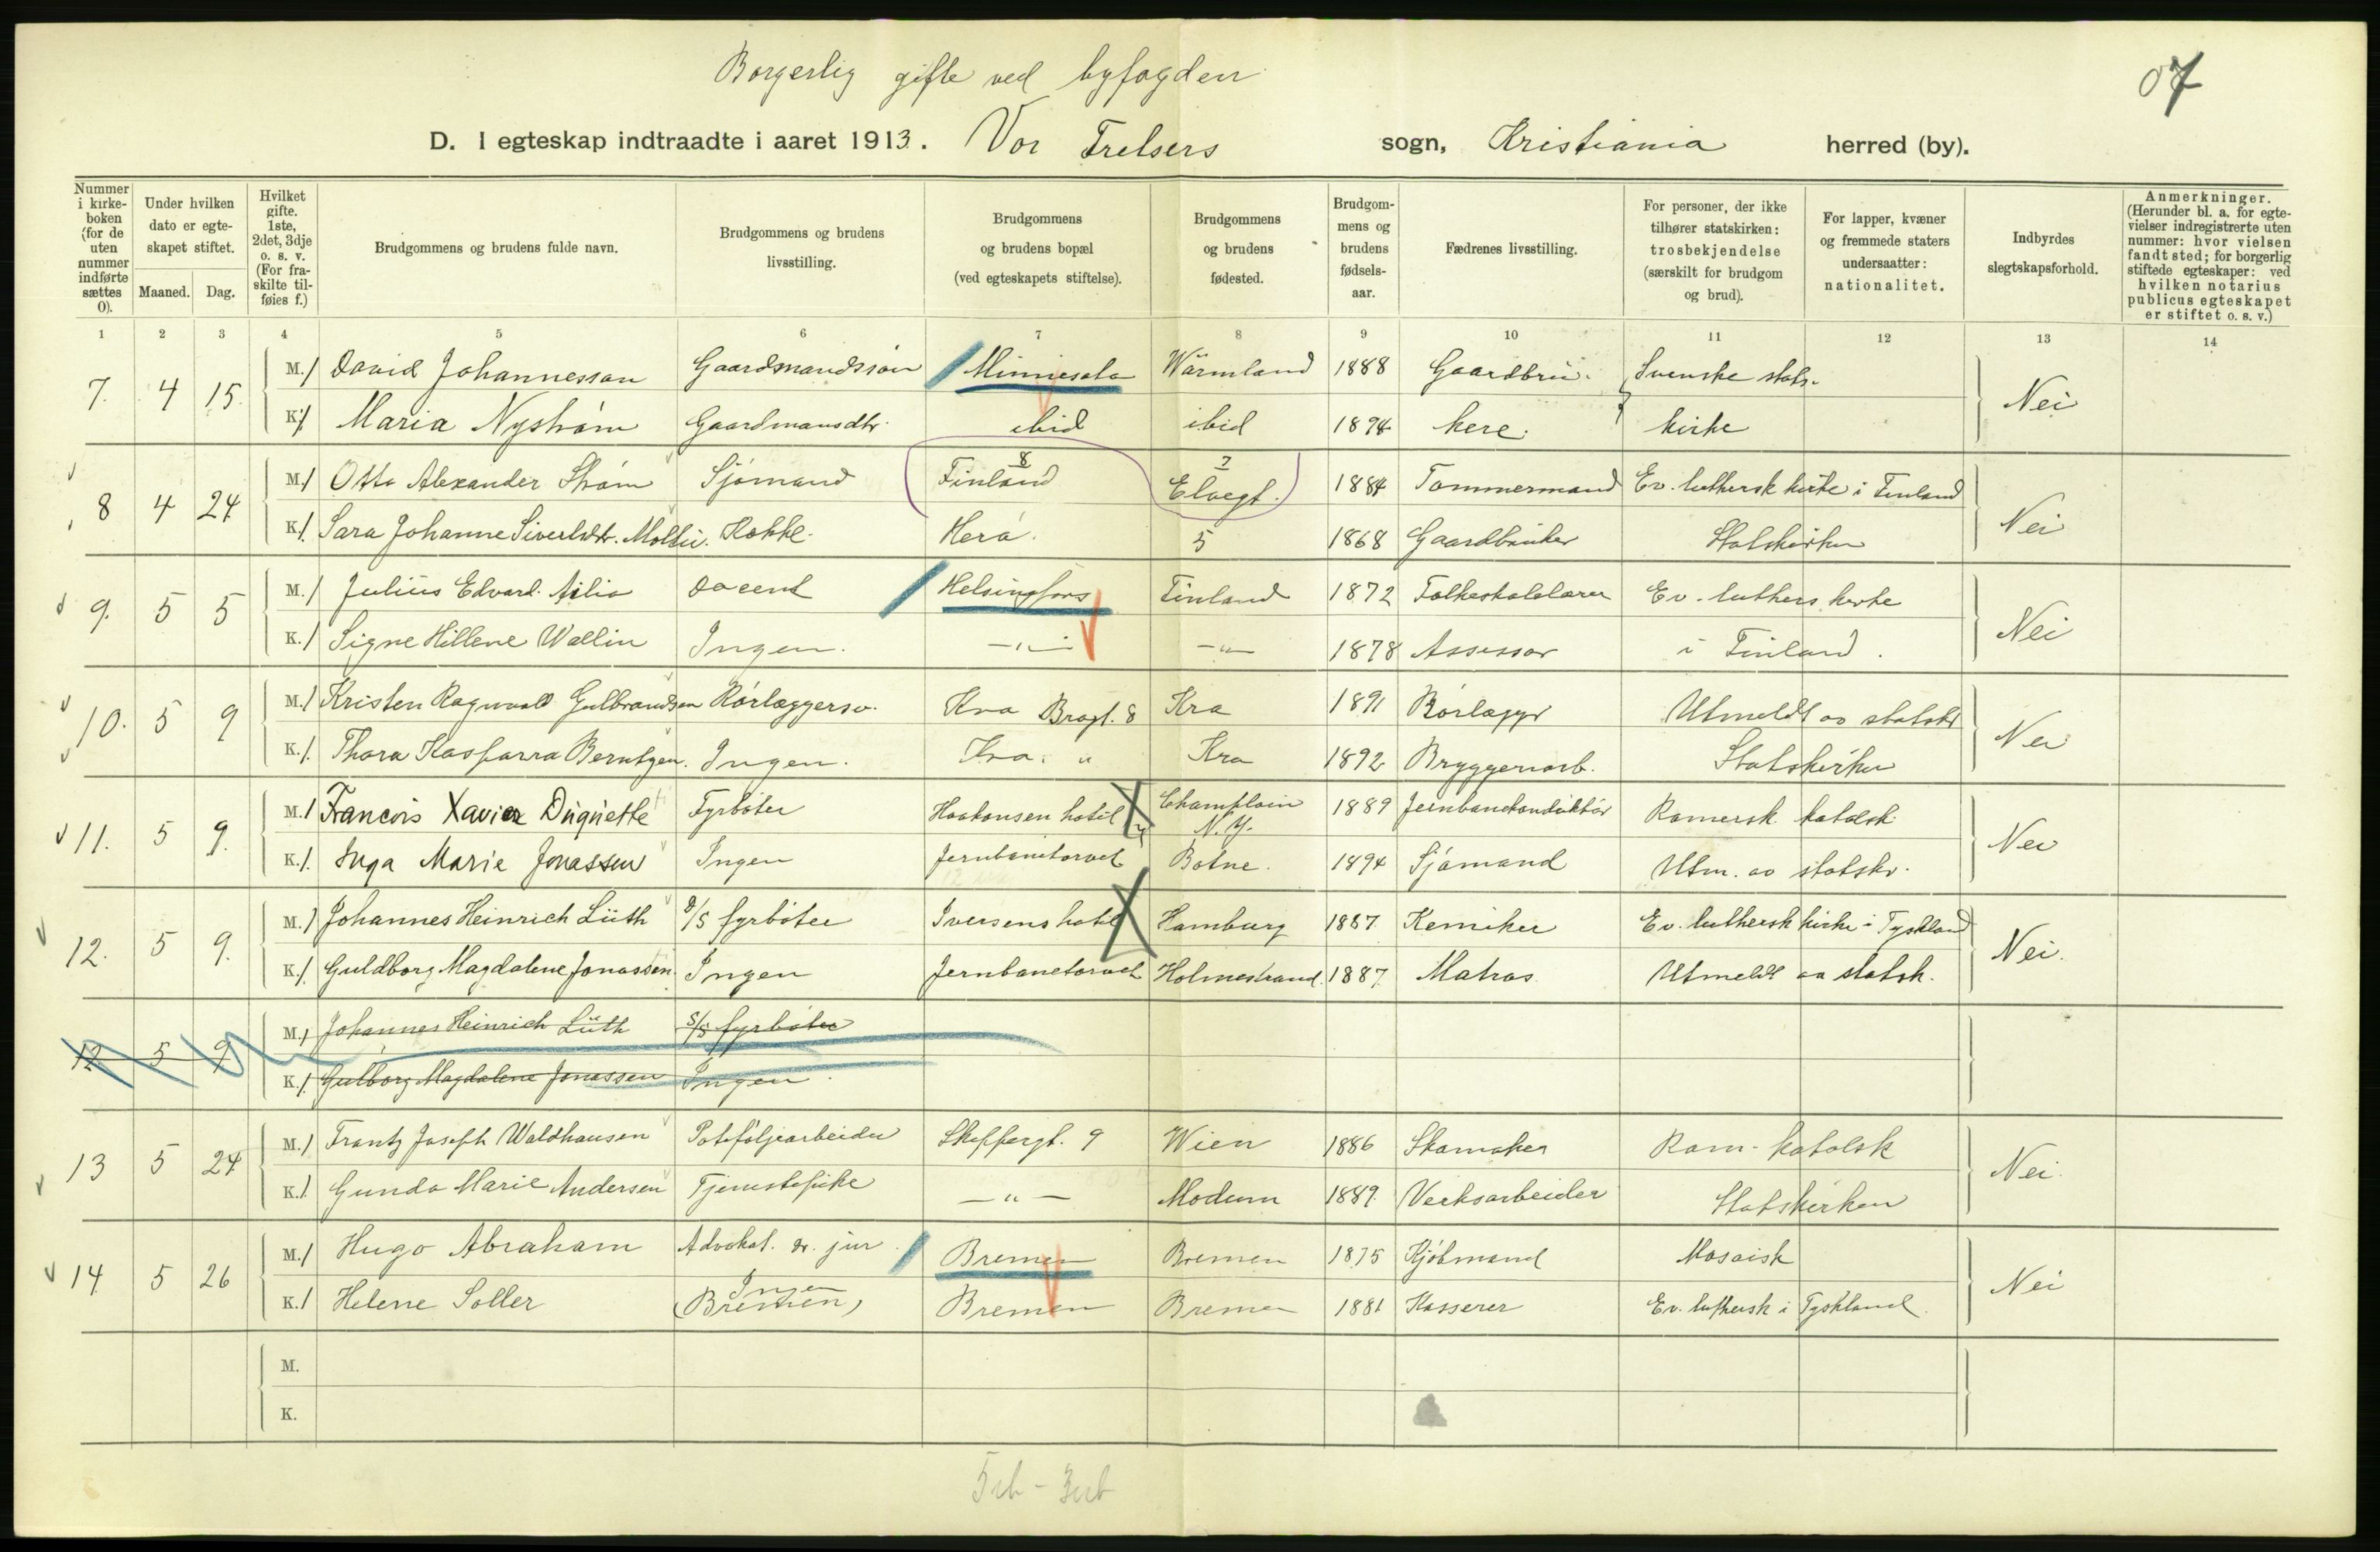 Borgerlig gifte ved byfogden
07
D. I egteskap indtraadte i aaret 1913. Vor Frelsers sogn, Kristiania herred (by).
Nummer i kirke-boken (for de uten nummer indførte sættes 0).
Under hvilken dato er egte-skapet stiftet.
Maaned. Dag.
Hvilket gifte. 1ste, 2det, 3dje o. s. v. (For fra-skilte til-føies f.)
Brudgommens og brudens fulde navn.
Brudgommens og brudens livsstilling.
Brudgommens og brudens bopæl (ved egteskapets stiftelse).
Brudgommens og brudens fødested.
Brudgom-mens og brudens fødsels-aar.
Fædrenes livsstilling.
For personer, der ikke tilhører statskirken: trosbekjendelse (særskilt for brudgom og brud).
For lapper, kvæner og fremmede staters undersaatter: nationalitet.
Indbyrdes slegtskapsforhold.
Anmerkninger. (Herunder bl. a. for egte-vielser indregistrerte uten nummer: hvor vielsen fandt sted; for borgerlig stiftede egteskaper: ved hvilken notarius publicus egteskapet er stiftet o. s. v.)
1 2 3 4 5 6 7 8 9 10 11 12 13 14
7. 4 15. M. 1 David Johannesson Gaardmandssøn Minnesota Wärmland 1888 Gaardbru- Svenske stats- Nei
K. 1 Maria Nyström Gaardmansdtr. ibid ibid 1894 kere. kirke
8 4 24 M. 1 Otto Alexander Strøm Sjømand Finland 8 Elvegt. 7 1884 Tømmermand Ev. luthersk kirke i Finland Nei
K. 1. Sara Johanne Sivertsdtr. Kokke. Herø. 5 1868 Gaardbruker Statskirken
9. 5 5 M. 1 Julius Edvard Ailio Docent Helsingfors Finland 1872 Folkeskolelærer Ev. luthers kirke Nei
K. 1 Signe Hillene Wallin Ingen. —"— —"— 1878 Assessor i Finland.
10. 5 9 M. 1 Kristen Ragnvald Gulbrandsen Rørlæggersv. Kra Brogt. 8 Kra 1891 Rørlægger Utmeldt av statskr Nei
K. 1. Thora Kasparra Berntzen. Ingen. Kra. " Kra 1892 Bryggeriarb. Statskirken
11. 5 9. M. 1 Francois Xavier Duquette Fyrbøter Haakonsen hotel Champlain N. Y. 1889 Jernbanekonduktør Romersk katolsk Nei
K. 1. Inga Marie Jonassen Ingen Jernbanetorvet Botne. 1894 Sjømand Utm. av statskr.
12. 5 9. M. 1 Johannes Heinrich Lüth D/S fyrbøter Iversens hotel Hamburg 1887 Kemiker Ev. luthersk kirke i Tyskland Nei.
K. 1. Guldborg Magdalene Jonassen Ingen Jernbanetorvet Holmestrand. 1887 Matros Utmeldt av statsk.
12 5 9 M. 1 Johannes Heinrich Lüth S/S fyrbøter
K. 1. Gulborg Magdalene Jonassen Ingen
13 5 24 M. 1 Frantz Joseph Waldhausen Portføljearbeider Skippergt. 9 Wien 1886 Skomaker Rom-katolsk Nei.
K. 1. Gunda Marie Andersen Tjenestepike —"— Modum 1889. Verksarbeider Statskirken
14 5 26 M. 1 Hugo Abraham Advokat. dr. jur. Bremen Bremen 1875 Kjøbmand Mosaisk Nei
K. 1 Helene Soller Ingen (Bremen) Bremen Bremen 1881 Kasserer Ev. luthersk i Tyskland.
M.
K.